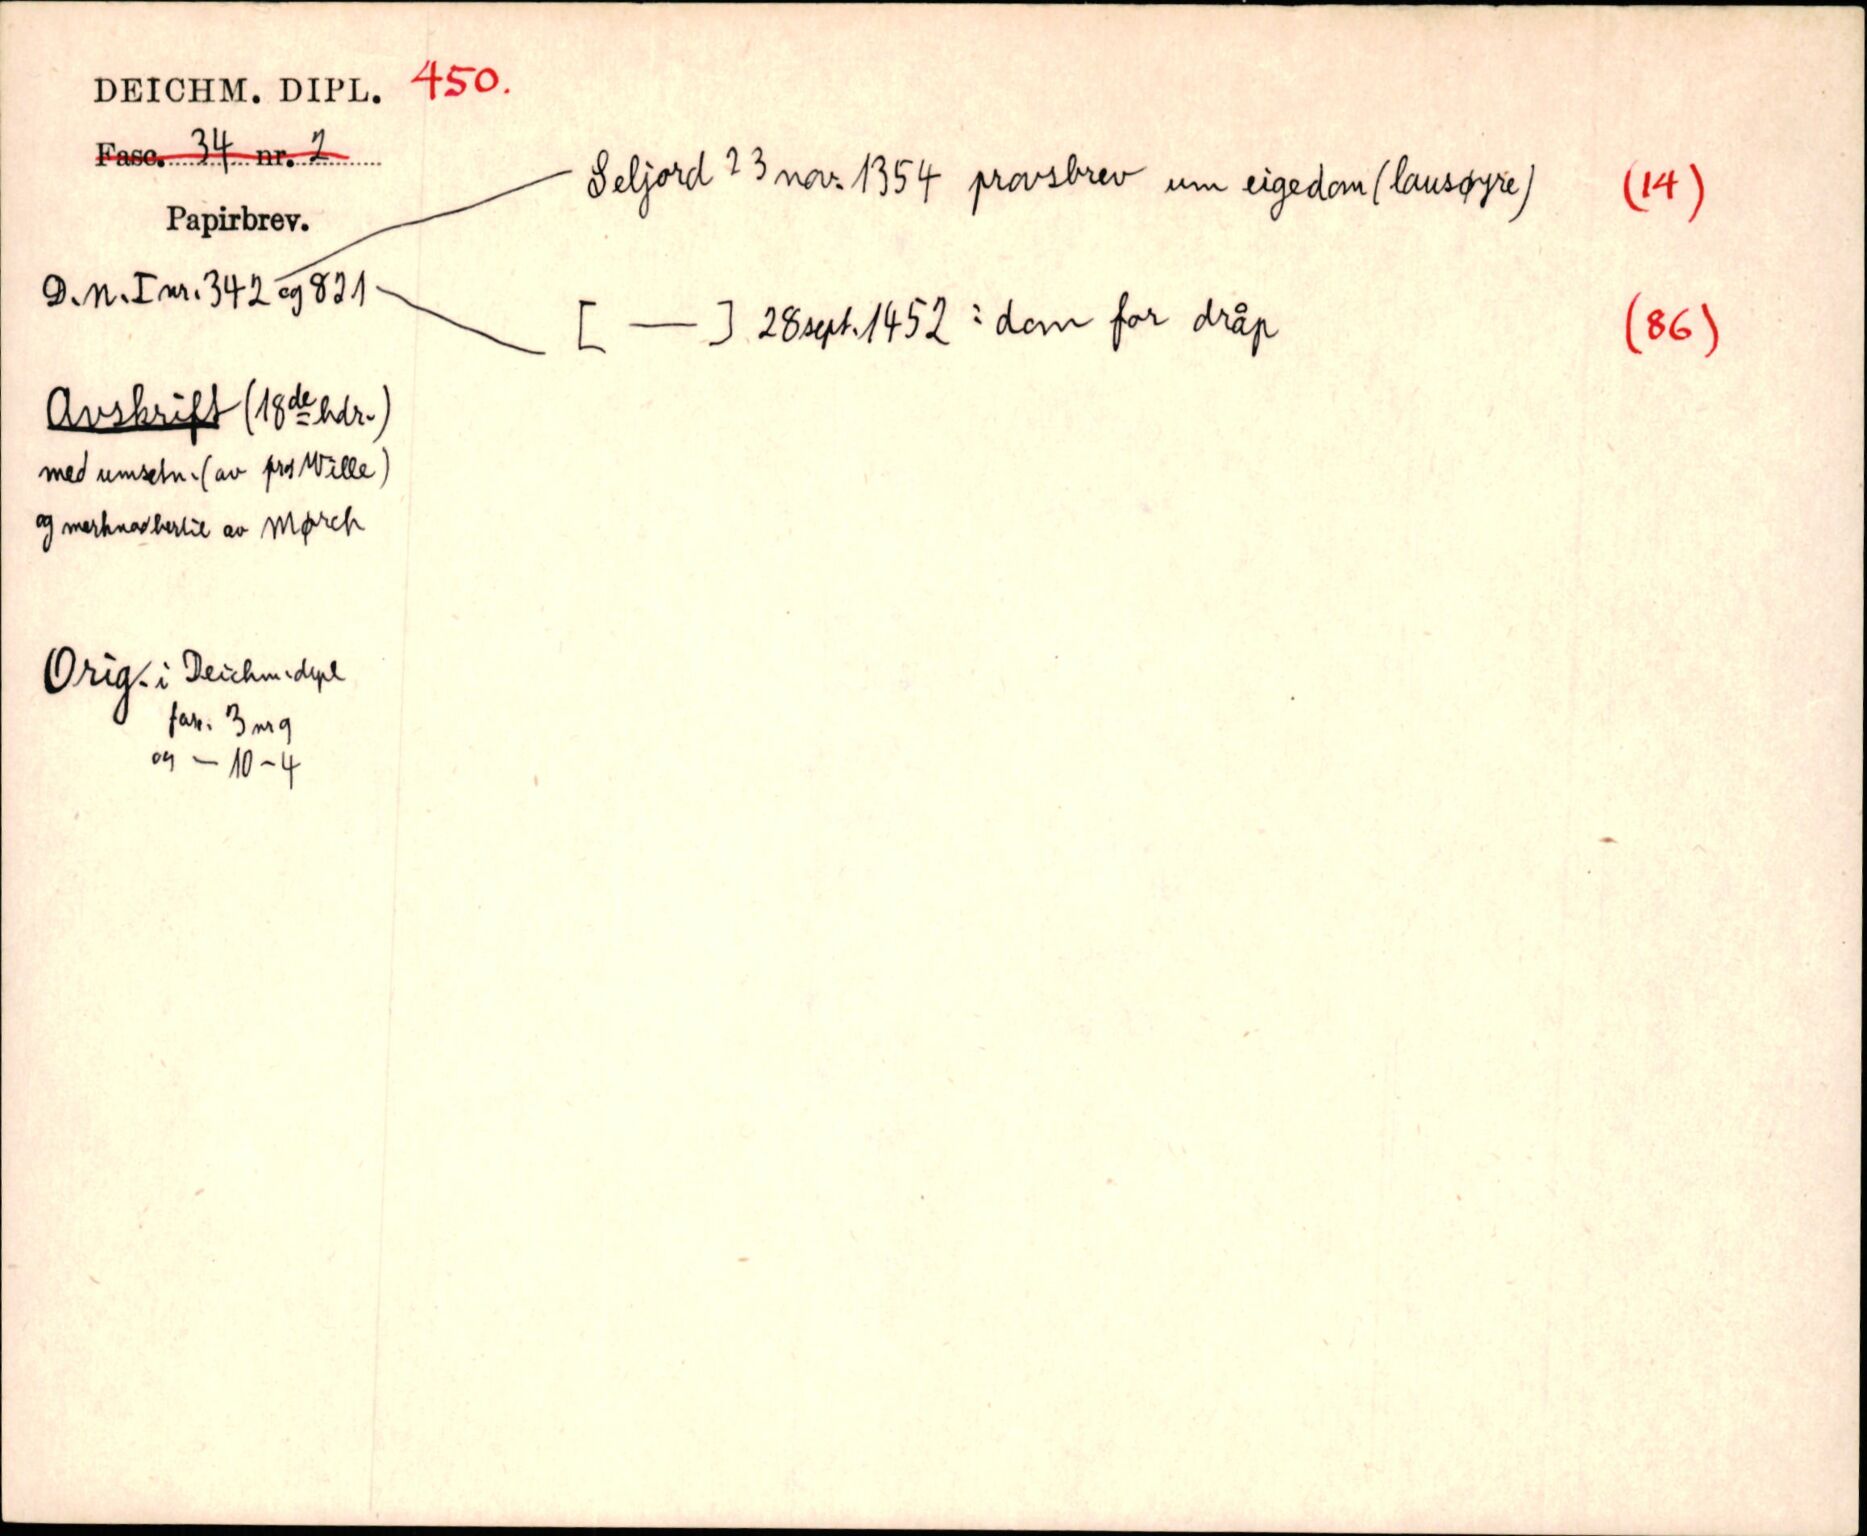 DEICHM. DIPL. 450.
Fasc. 34 nr. 2
Papirbrev.
D.N. I nr. 342 og 821
Seljord 23 nov. 1354 provsbrev um eigedom (lausøyre) (14)
[ — ] 28 sept. 1452 : dom for dråp (86)
Avskrift (18de hdr.)
med umsetn. (av prs Wille)
og av Mørch
Orig. i Deichm. dipl
fasc. 3 nr 9
og — 10 - 4